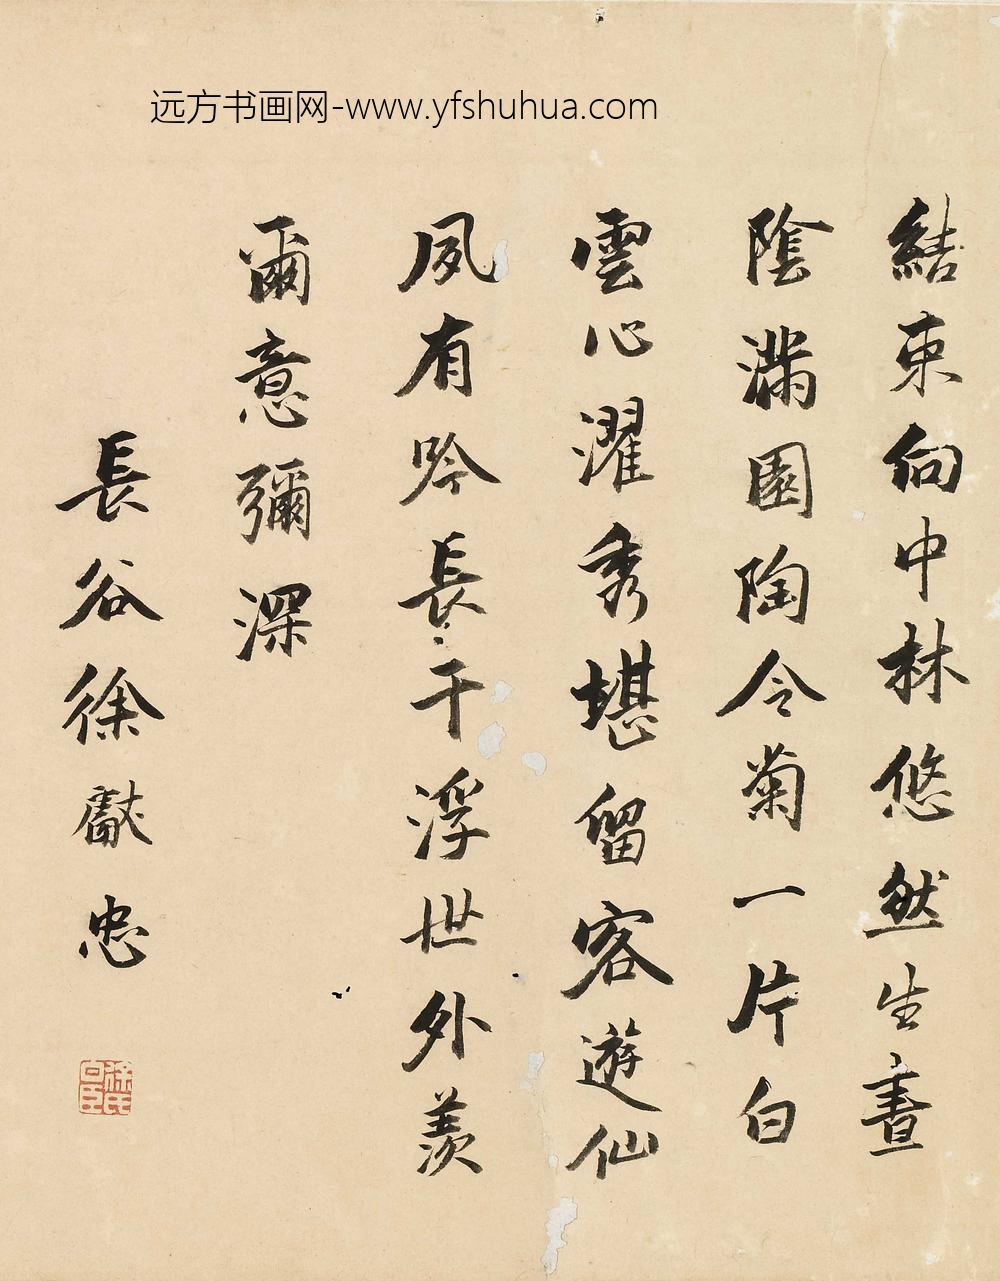 远方书画网-www.yfshuhua.com
結束向中林悠然生晝
陰满園陶令菊一片白
雲心濯秀堪留客遊仙
夙有吟長干浮世外羨
爾意彌深
長谷徐獻忠
徐氏
白臣